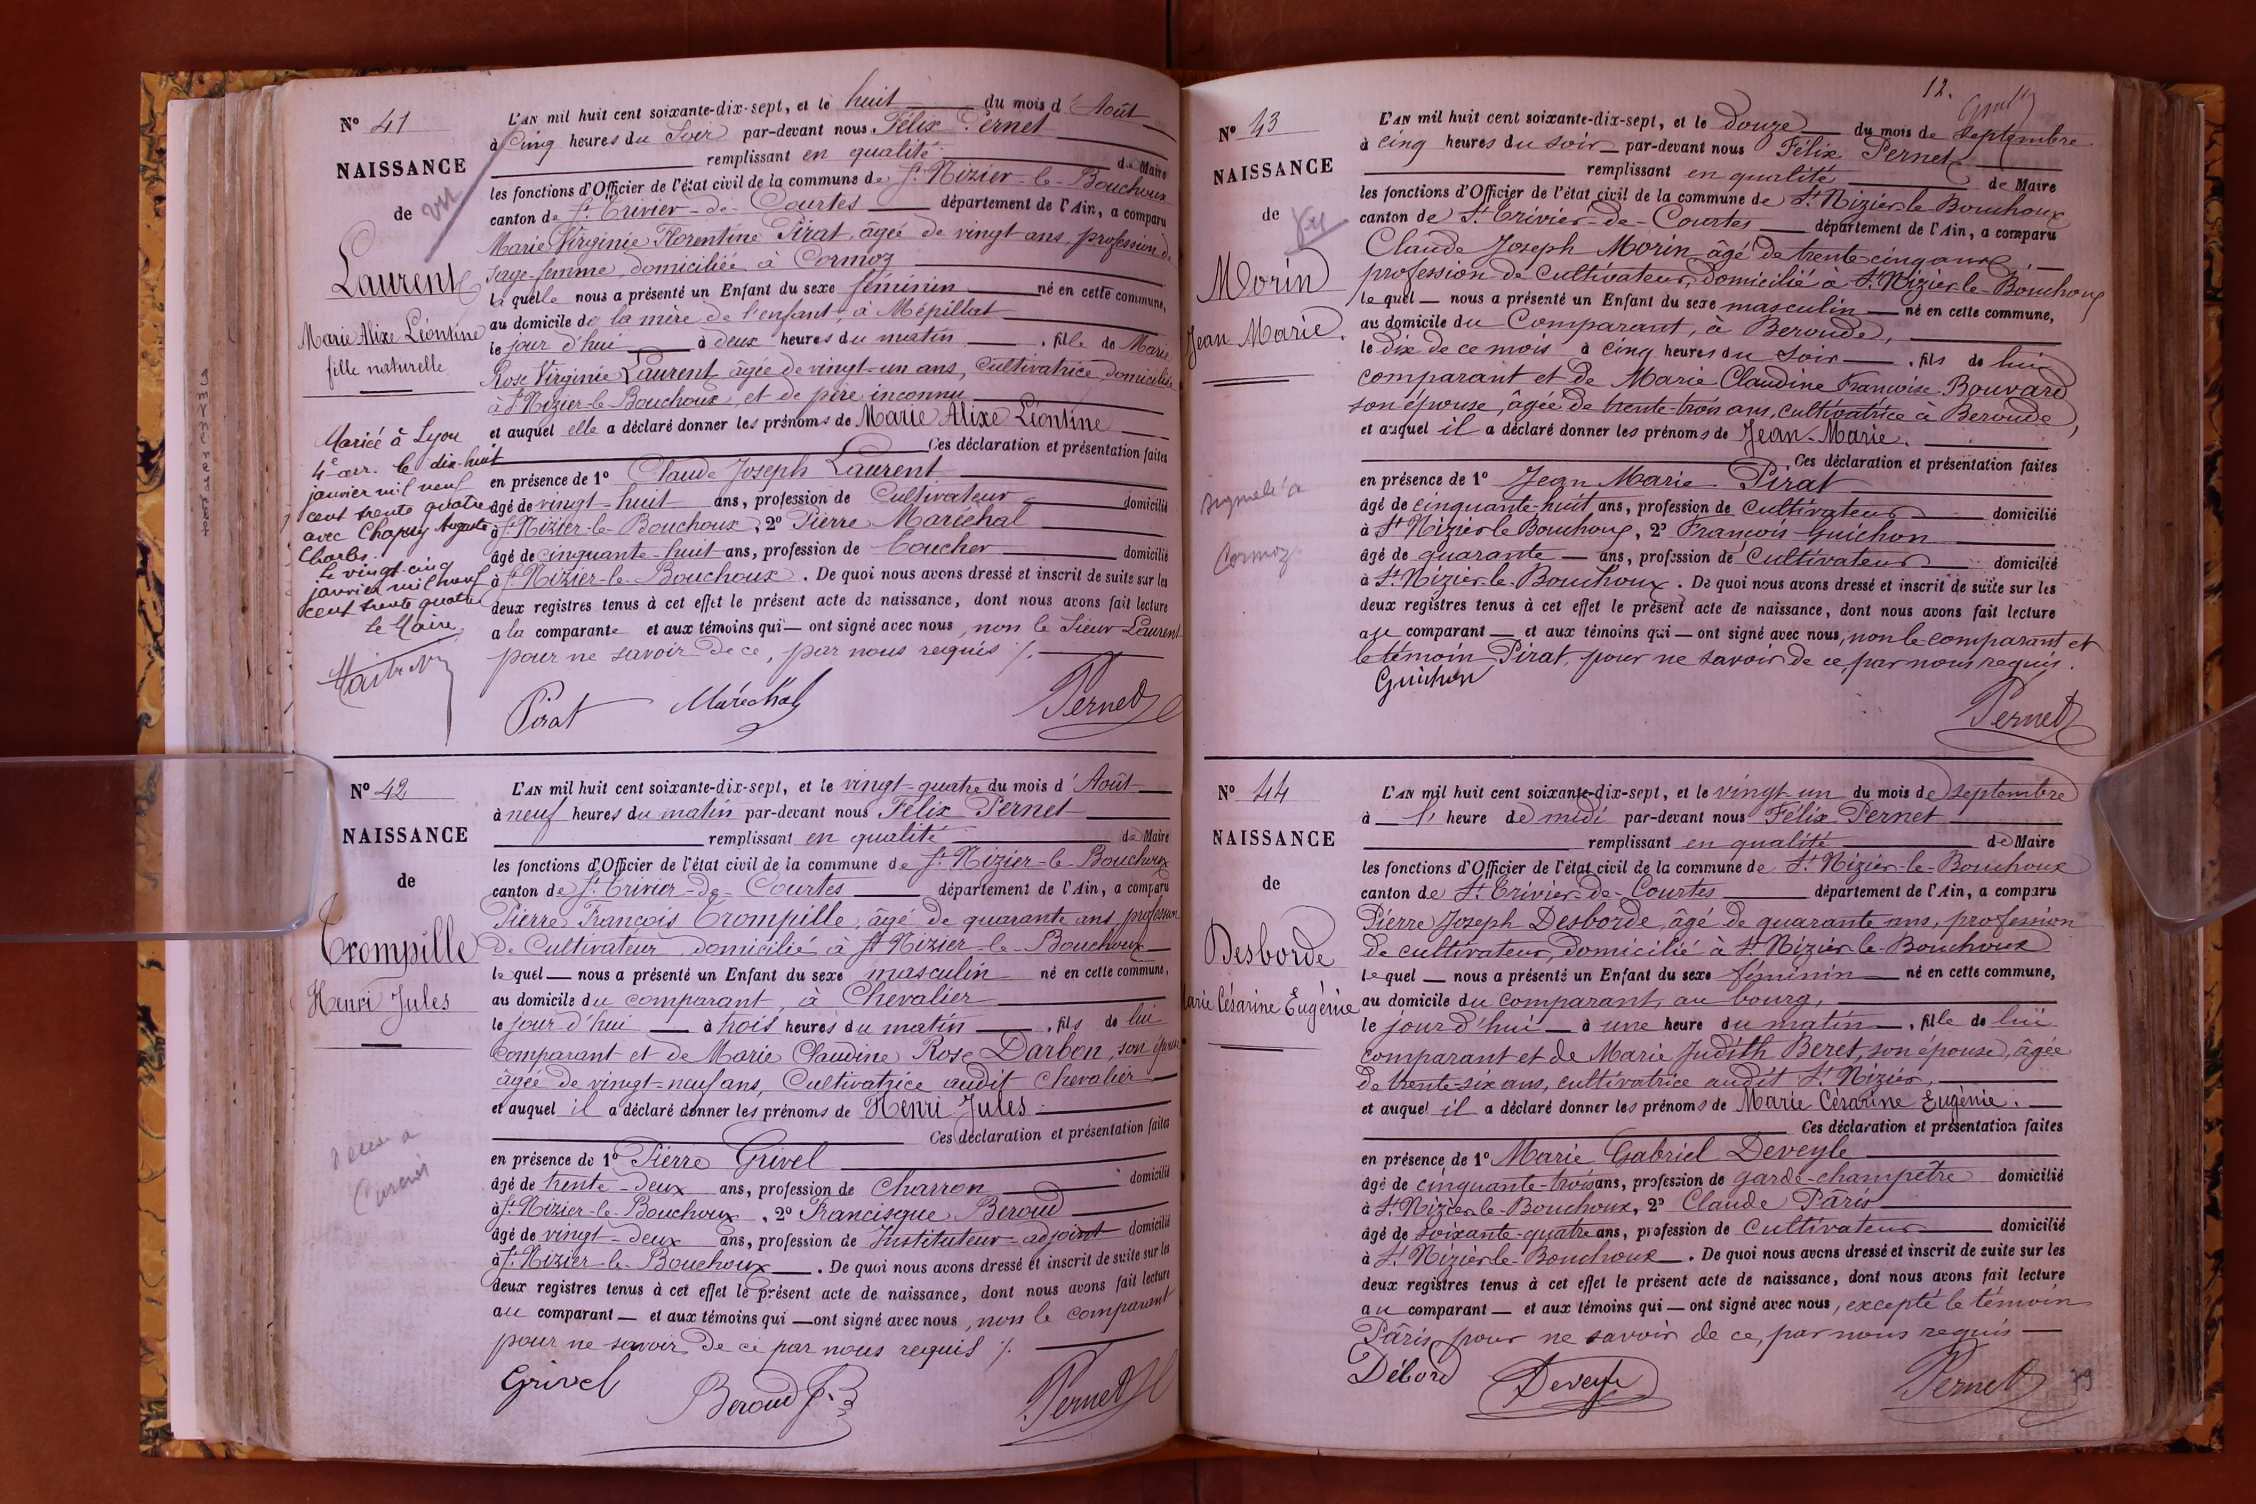 N° 41
NAISSANCE
de
vu
Laurent
Marie Alixe Léontine
fille naturelle
Mariée à Lyon
4e arr. le dix-huit
janvier mil neuf
cent trente quatre
avec Chapuy Auguste
Charles.
Le vingt-cinq
janvier mil neuf
cent trente quatre
Le Maire,
L'AN mil huit cent soixante-dix-sept, et le huit du mois d'Août
à Cinq heures du Soir par-devant nous Félix Pernet
remplissant en qualité de Maire
les fonctions d'Officier de l'état civil de la commune de St Nizier-le-Bouchoux
canton de St Trivier-de-Courtes département de l'Ain, a comparu
Marie Virginie Florentine Pirat, âgée de vingt ans, profession de
Sage-femme, domiciliée à Cormoz
laquelle nous a présenté un Enfant du sexe féminin né en cette commune,
au domicile de la mère de l'enfant, à Mépillat
le jour d'hui à deux heures du matin, fille de Marie
Rose Virginie Laurent âgée de vingt-un ans, Cultivatrice, domiciliée
à St Nizier-le-Bouchoux, et de père inconnu
et auquel elle a déclaré donner les prénoms de Marie Alixe Léontine
Ces déclaration et présentation faites
en présence de 1° Claude Joseph Laurent
âgé de vingt-huit ans, profession de Cultivateur domicilié
à St Nizier-le-Bouchoux, 2° Pierre Maréchal
âgé de cinquante-huit ans, profession de Coucher domicilié
à St Nizier-le-Bouchoux. De quoi nous avons dressé et inscrit de suite sur les
deux registres tenus à cet effet le présent acte de naissance, dont nous avons fait lecture
a la comparante et aux témoins qui ont signé avec nous, non le Sieur Laurent
pour ne savoir de ce, par nous requis /.
Pirat Maréchal Pernet
N° 42
NAISSANCE
de
Trompille
Henri Jules
L'AN mil huit cent soixante-dix-sept, et le vingt-quatre du mois d'Août
à neuf heures du matin par-devant nous Félix Pernet
remplissant en qualité de Maire
les fonctions d'Officier de l'état civil de la commune de St Nizier-le-Bouchoux
canton de St Trivier-de-Courtes département de l'Ain, a comparu
Pierre François Trompille, âgé de quarante ans, profession
de Cultivateur domicilié à St Nizier-le-Bouchoux
lequel nous a présenté un Enfant du sexe masculin né en cette commune,
au domicile du comparant, à Chevalier
le jour d'hui à trois heures du matin, fils de lui
comparant et de Marie Claudine Rose Darbon, son épouse
âgée de vingt-neuf ans, Cultivatrice audit Chevalier
et auquel il a déclaré donner les prénoms de Henri Jules
Ces déclaration et présentation faites
en présence de 1° Pierre Grivel
âgé de trente-deux ans, profession de Charron domicilié
à St Nizier-le-Bouchoux, 2° Francisque Beroud
âgé de vingt-deux ans, profession de Instituteur-adjoint domicilié
à St Nizier-le-Bouchoux. De quoi nous avons dressé et inscrit de suite sur les
deux registres tenus à cet effet le présent acte de naissance, dont nous avons fait lecture
au comparant et aux témoins qui ont signé avec nous, non le comparant
pour ne savoir de ce par nous requis /.
Grivel Beroud F. Pernet
12.
N° 43
NAISSANCE
de
Vu
Morin
Jean Marie.
Cormoz
L'AN mil huit cent soixante-dix-sept, et le douze du mois de septembre
à cinq heures du soir par-devant nous Félix Pernet
remplissant en qualité de Maire
les fonctions d'Officier de l'état civil de la commune de St Nizier le Bouchoux
canton de St Trivier-de-Courtes département de l'Ain, a comparu
Claude Joseph Morin, âgé de trente cinq ans,
profession de cultivateur, domicilié à St Nizier-le-Bouchoux
lequel nous a présenté un Enfant du sexe masculin né en cette commune,
au domicile du Comparant, à Beroude,
le dix de ce mois à cinq heures du Soir, fils de lui
comparant et de Marie Claudine Françoise Bouvard
son épouse, âgée de trente-trois ans, cultivatrice à Beroude,
et auquel il a déclaré donner les prénoms de Jean-Marie.
Ces déclaration et présentation faites
en présence de 1° Jean Marie Pirat
âgé de cinquante-huit ans, profession de Cultivateur domicilié
à St Nizier le Bouchoux, 2° François Guichon
âgé de quarante ans, profession de Cultivateur domicilié
à St Nizier le Bouchoux. De quoi nous avons dressé et inscrit de suite sur les
deux registres tenus à cet effet le présent acte de naissance, dont nous avons fait lecture
au comparant et aux témoins qui ont signé avec nous, non le comparant et
le témoin Pirat, pour ne savoir de ce, par nous requis.
Guichon
Pernet
N° 44
NAISSANCE
de
Desborde
Marie Césarine Eugénie
L'AN mil huit cent soixante-dix-sept, et le vingt-un du mois de septembre
à l' heure de midi par-devant nous Félix Pernet
remplissant en qualité de Maire
les fonctions d'Officier de l'état civil de la commune de St Nizier-le-Bouchoux
canton de St Trivier-de-Courtes département de l'Ain, a comparu
Pierre Joseph Desborde, âgé de quarante ans, profession
de cultivateur, domicilié à St Nizier-le-Bouchoux
lequel nous a présenté un Enfant du sexe féminin né en cette commune,
au domicile du comparant, au bourg,
le jour d'hui à une heure du matin, fille de lui
comparant et de Marie Judith Beret, son épouse, âgée
de trente-six ans, cultivatrice audit St Nizier,
et auquel il a déclaré donner les prénoms de Marie Césarine Eugénie.
Ces déclaration et présentation faites
en présence de 1° Marie Gabriel Deveyle
âgé de cinquante-trois ans, profession de garde-champêtre domicilié
à St Nizier le-Bouchoux, 2° Claude Pâris
âgé de soixante-quatre ans, profession de Cultivateur domicilié
à St Nizier le-Bouchoux. De quoi nous avons dressé et inscrit de suite sur les
deux registres tenus à cet effet le présent acte de naissance, dont nous avons fait lecture
au comparant et aux témoins qui ont signé avec nous, excepté le témoin
Pâris, pour ne savoir de ce, par nous requis
Débord Deveyle Pernet
79